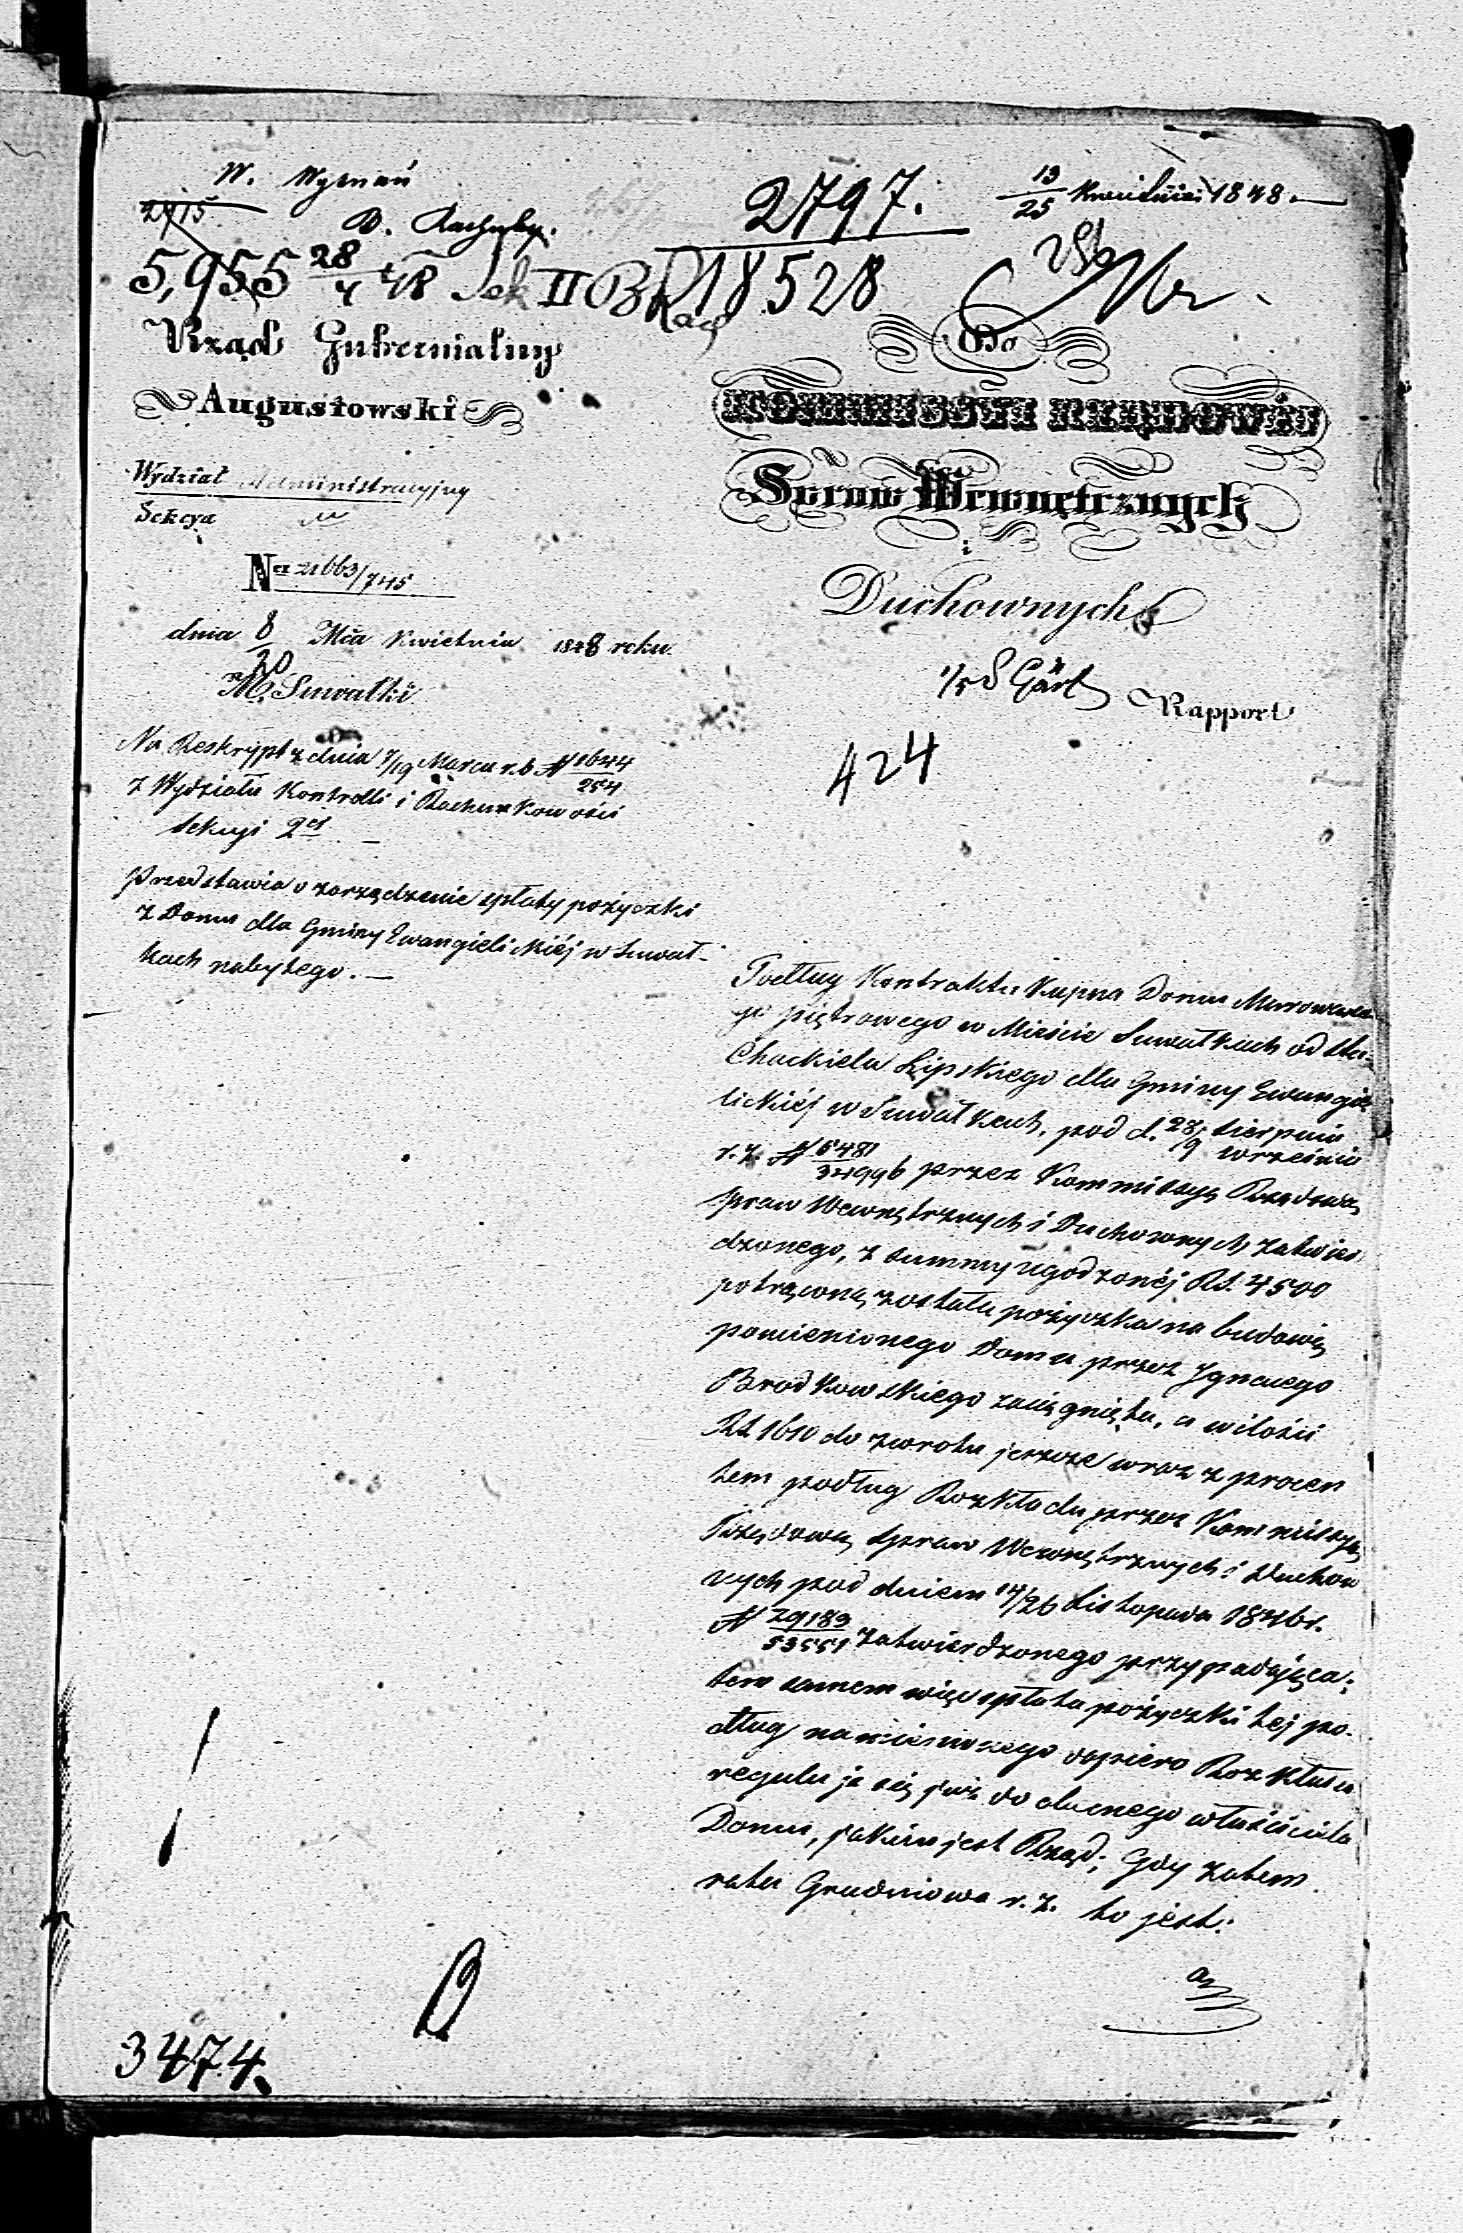 W. Wyznań
2915
B. Rachuby.
2797.
13/25 Kwietnia 1848.
5,955 28/4 48 Sek II B Rac 18528
Rząd Gubernialny
Augustowski
Do
KOMMISSYI RZĄDOWÉY
Spraw Wewnętrznych
i
Duchownych
Wydział Administracyjny
Sekcya
Nr 21663/745
dnia 8/20 Mca Kwietnia 1848 roku
w M. Suwałki
Rapport
424
Na Reskrypt z dnia 7/19 Marca r. b. N 1644/254
z Wydziału Kontrolli i Rachunkowości
Sekcyi 2ej
Przedstawia o zarządzenie spłaty pożyczki
z Domu dla Gminy Ewangielickiéj w Suwał-
kach nabytego. —
Podług Kontraktu Kupna Domu Murowane-
go piętrowego w Mieście Suwałkach od Sta-
Chackiela Lipskiego dla Gminy Ewangie-
lickiéj w Suwałkach, pod d. 28/9 Sierpnia Września
r. z. N 6481/34996 przez Kommissyą Rządową
Spraw Wewnętrznych i Duchownych zatwier-
dzonego, z summy ugodzonéj RS. 4500
potrąconą została pożyczka na budowię
pomienionego Domu przez Ignacego
Brodkowskiego zaciągnięta, a w ilości
RS 1610 do zwrotu jeszcze wraz z procen
tem podług Rozkładu przez Kommissyą
Rządową Spraw Wewnętrznych i Duchow
nych pod dniem 14/26 Listopada 1846 r.
N 29183/53551 zatwierdzonego przypadająca;
tem samem więc spłata pożyczki téj po-
dług namienionego dopiero Rozkładu
reguluje się już do obecnego właściciela
Domu, jakim jest Rząd; Gdy zatem
rata Grudniowa r. z. to jest:
3474.